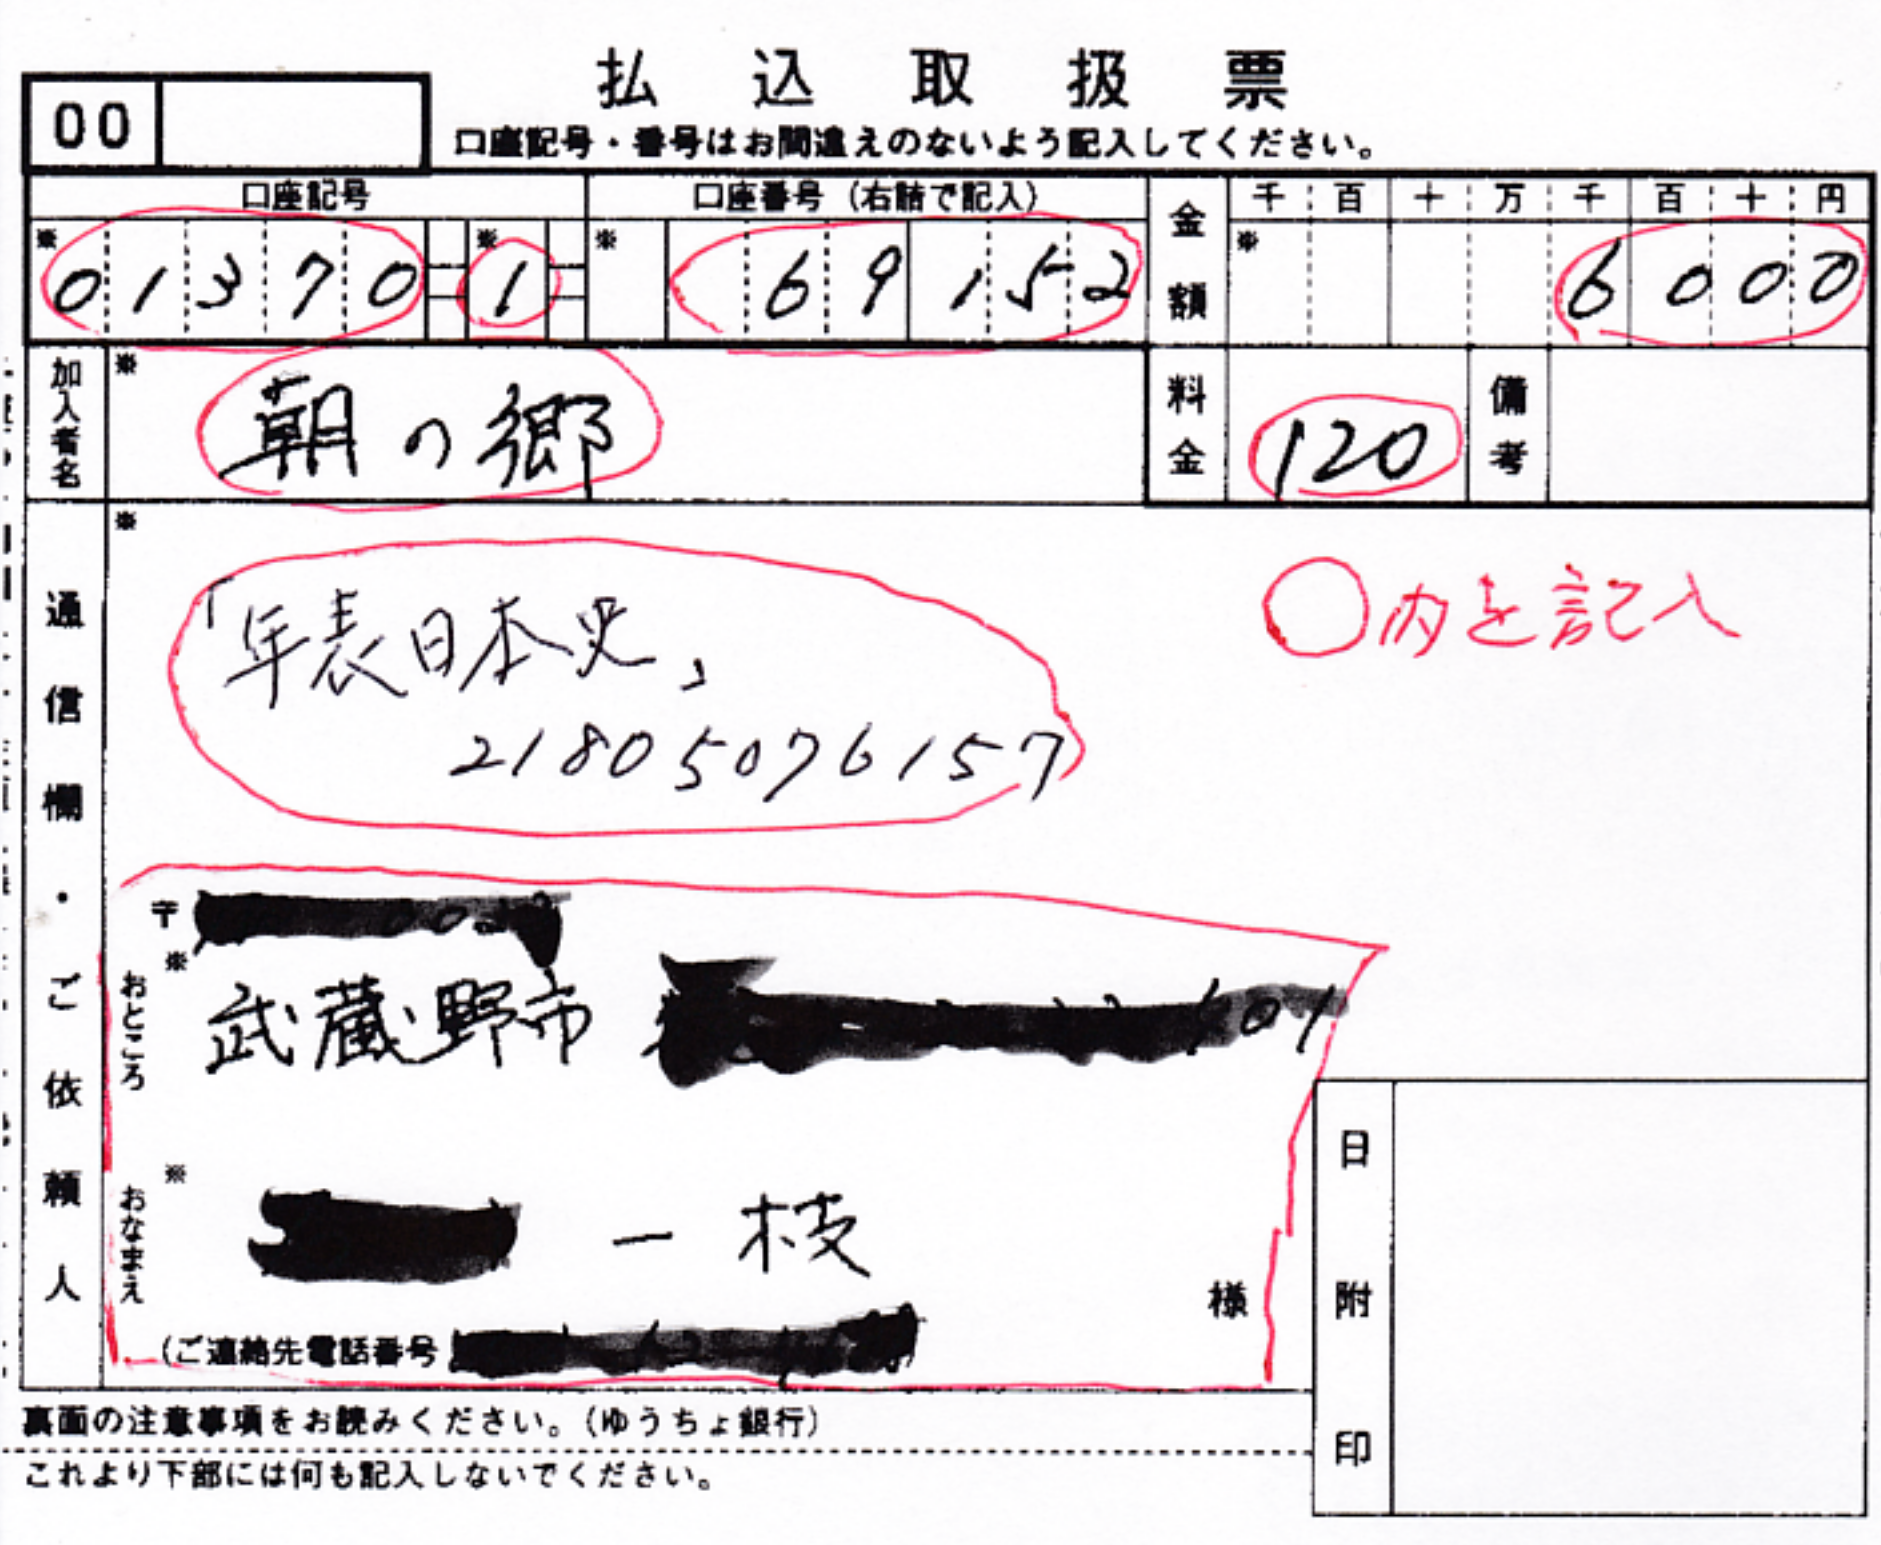 払込取扱票
00
口座記号・番号はお間違えのないよう記入してください。
口座記号 口座番号（右詰で記入） 金額 千 百 十 万 千 百 十 円
※ 01370 ※ 1 ※ 69152 ※ 6000
加入者名 ※ 朝の郷 料金 120 備考
通信欄・ご依頼人
※
「年表日本史」
21805076157
○内を記入
〒
おところ ※ 武蔵野市 101
おなまえ ※ 一枝 様
（ご連絡先電話番号
日附印
裏面の注意事項をお読みください。（ゆうちょ銀行）
これより下部には何も記入しないでください。